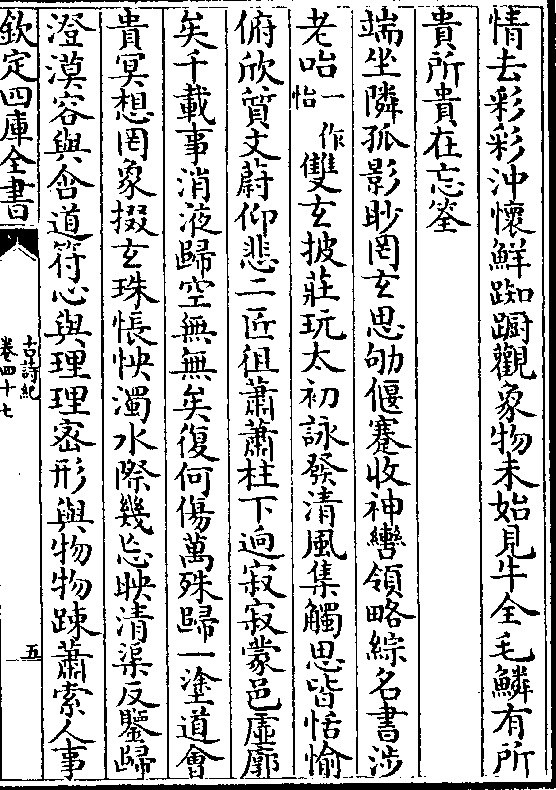 情去彩彩沖懷鮮踟蹰觀象物未始見牛全毛鱗有所
貴所貴在忘筌
端坐隣孤影眇罔玄思劬偃蹇收神轡領略綜名書涉
老咍一作怡雙玄披莊玩太初詠發清風集觸思皆恬愉
俯欣質文蔚仰悲二匠徂蕭蕭柱下逈寂寂蒙邑虛廓
矣千載事消液歸空無無矣復何傷萬殊歸一塗道會
貴冥想罔象掇玄珠悵怏濁水際幾忘映清渠反鑒歸
澄漠容與含道符心與理理宻形與物物踈蕭索人事
欽定四庫全書
古詩紀
卷四十七
五